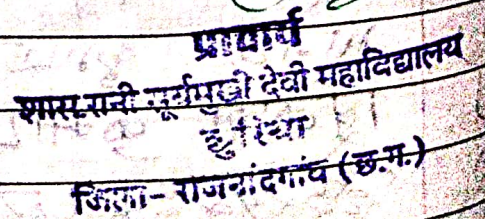 प्राचार्य
शास.रानी सूर्यमुखी देवी महाविद्यालय
छुरिया
जिला-राजनांदगांव (छ.ग.)